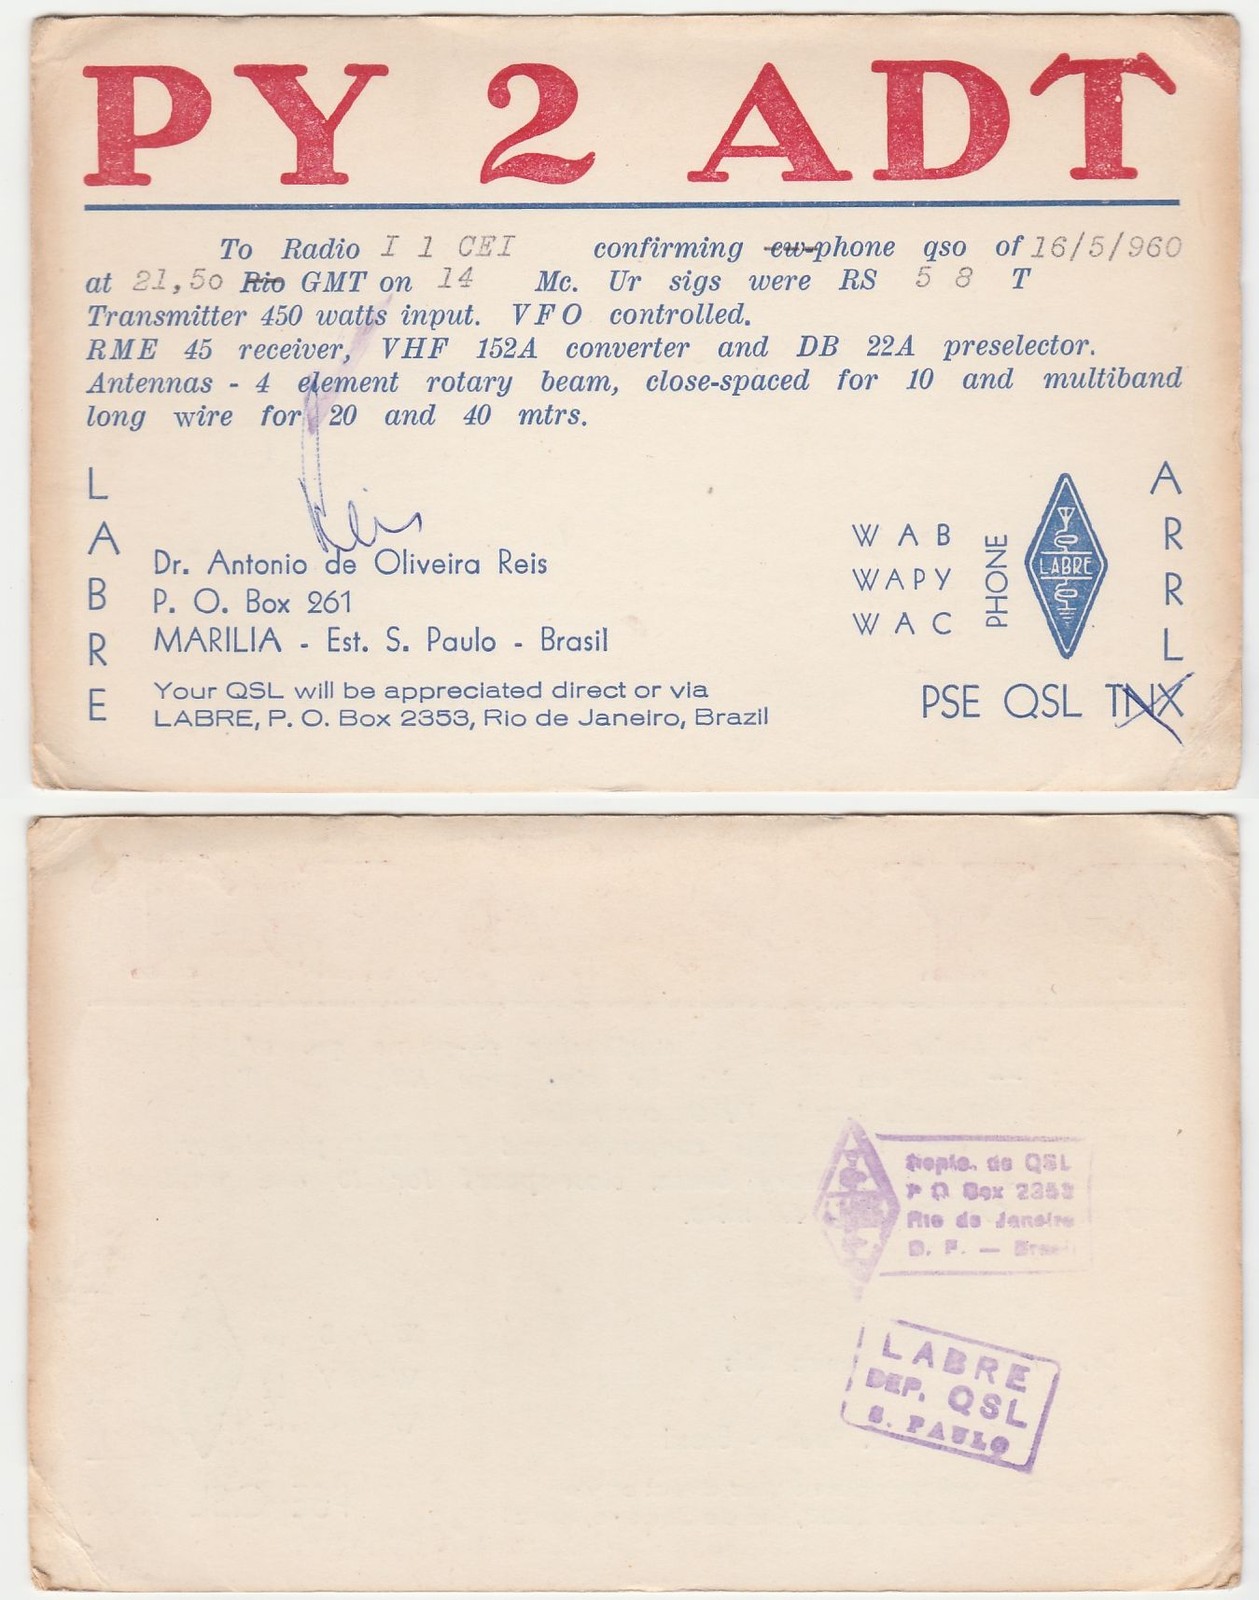 PY 2 ADT
To Radio I 1 CEI confirming cw-phone qso of 16/5/960
at 21,50 Rio GMT on 14 Mc. Ur sigs were RS 5 8 T
Transmitter 450 watts input. VFO controlled.
RME 45 receiver, VHF 152A converter and DB 22A preselector.
Antennas - 4 element rotary beam, close-spaced for 10 and multiband
long wire for 20 and 40 mtrs.
Reis
LABRE
Dr. Antonio de Oliveira Reis
P. O. Box 261
MARILIA - Est. S. Paulo - Brasil
Your QSL will be appreciated direct or via
LABRE, P. O. Box 2353, Rio de Janeiro, Brazil
WAB
WAPY
WAC
PHONE
LABRE
ARRL
PSE QSL TNX
Depto. de QSL
P O Box 2353
Rio de Janeiro
D. F. — Brasil
LABRE
DEP. QSL
S. PAULO